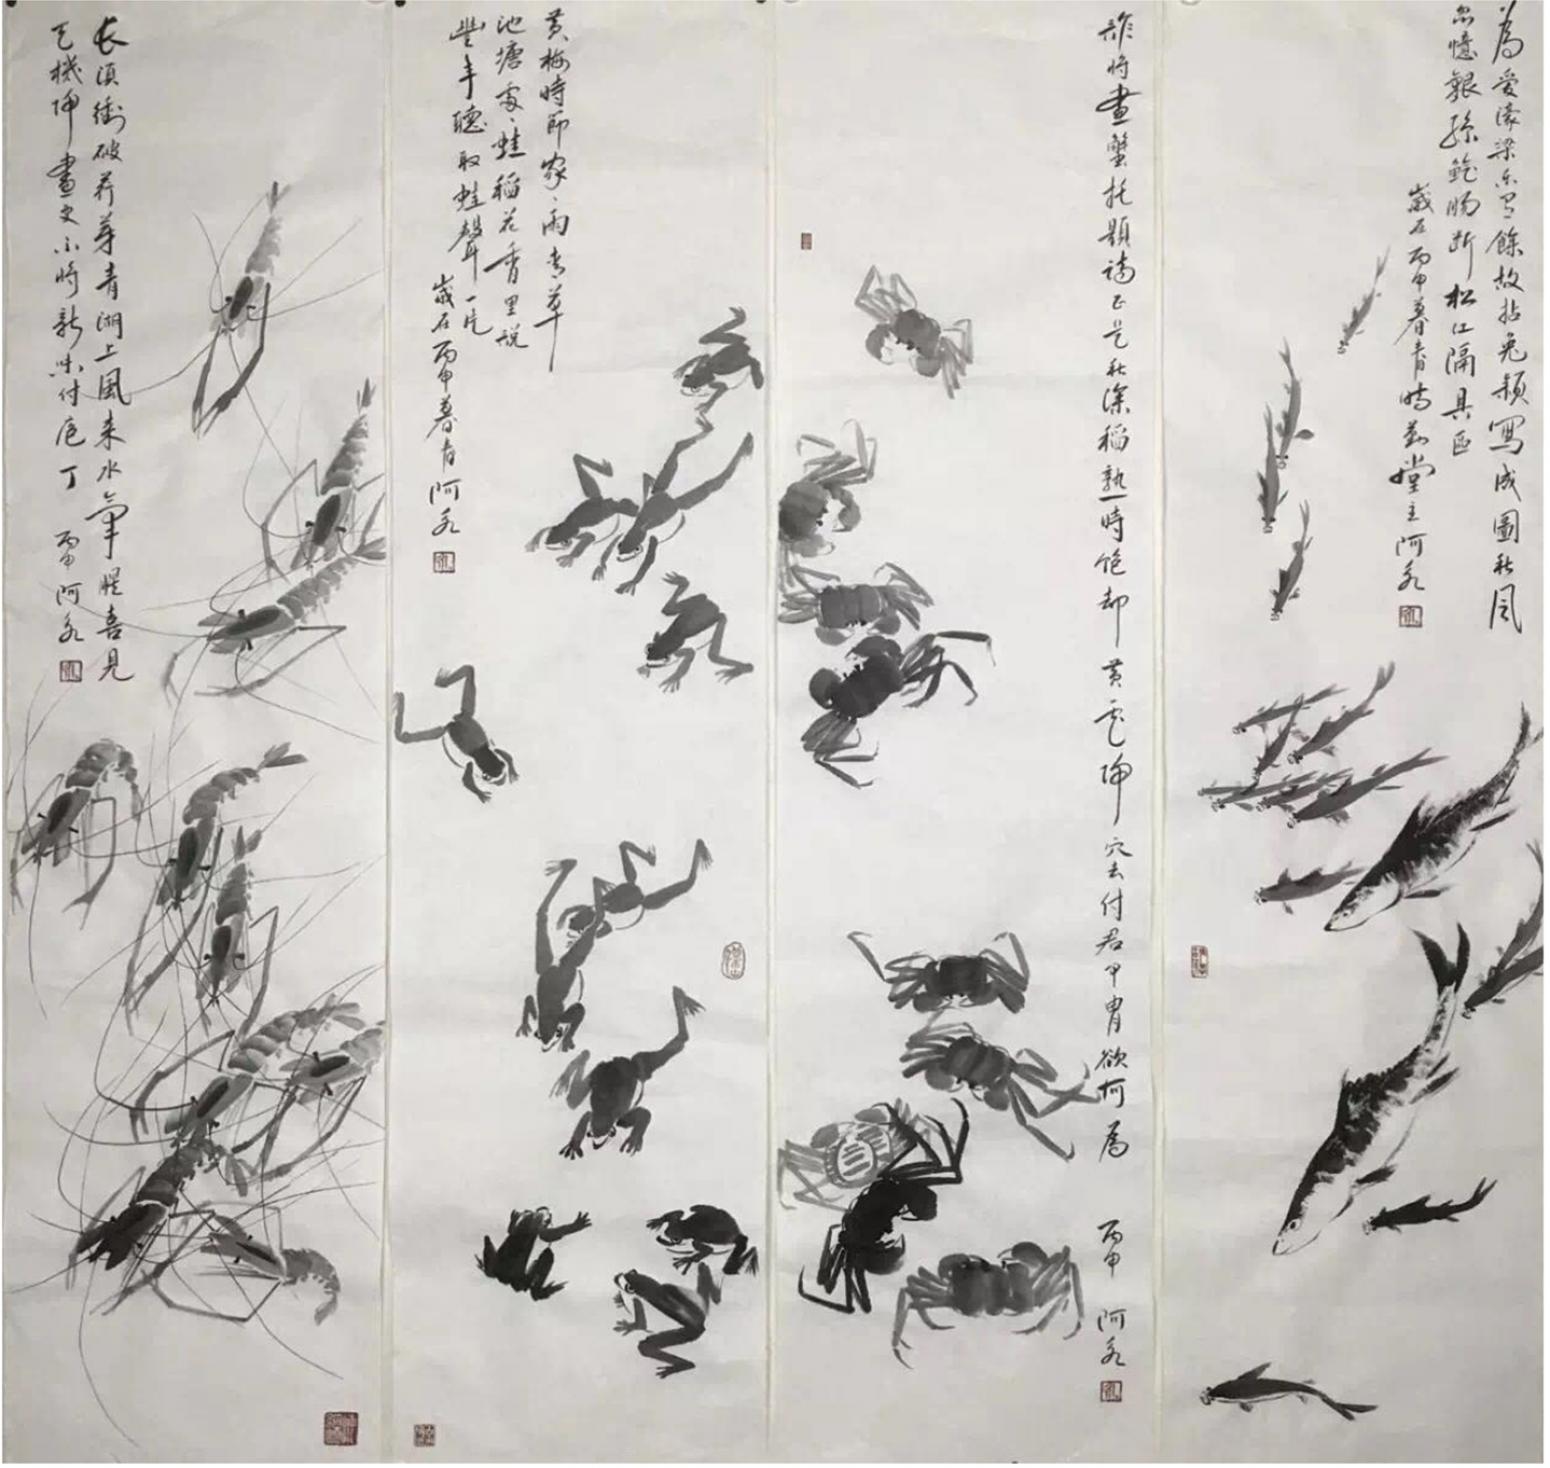 為愛濠梁樂有餘故拈兔穎寫成圖秋風
忽憶銀絲鱠腸斷松江隔具區
歲在丙申暮春時 堂主阿永
誰將畫蟹托題詩正是秋深稻熟時飽却黃雲歸穴去付君甲胄欲何為 丙申 阿永
黃梅時節家、雨青草
池塘處、蛙稻花香里說
豐年聽取蛙聲一片
歲在丙申暮春阿永
長須衝破荇芽青湖上風来水氣腥喜見
天機歸畫史不將新味付庖丁 丙申阿永